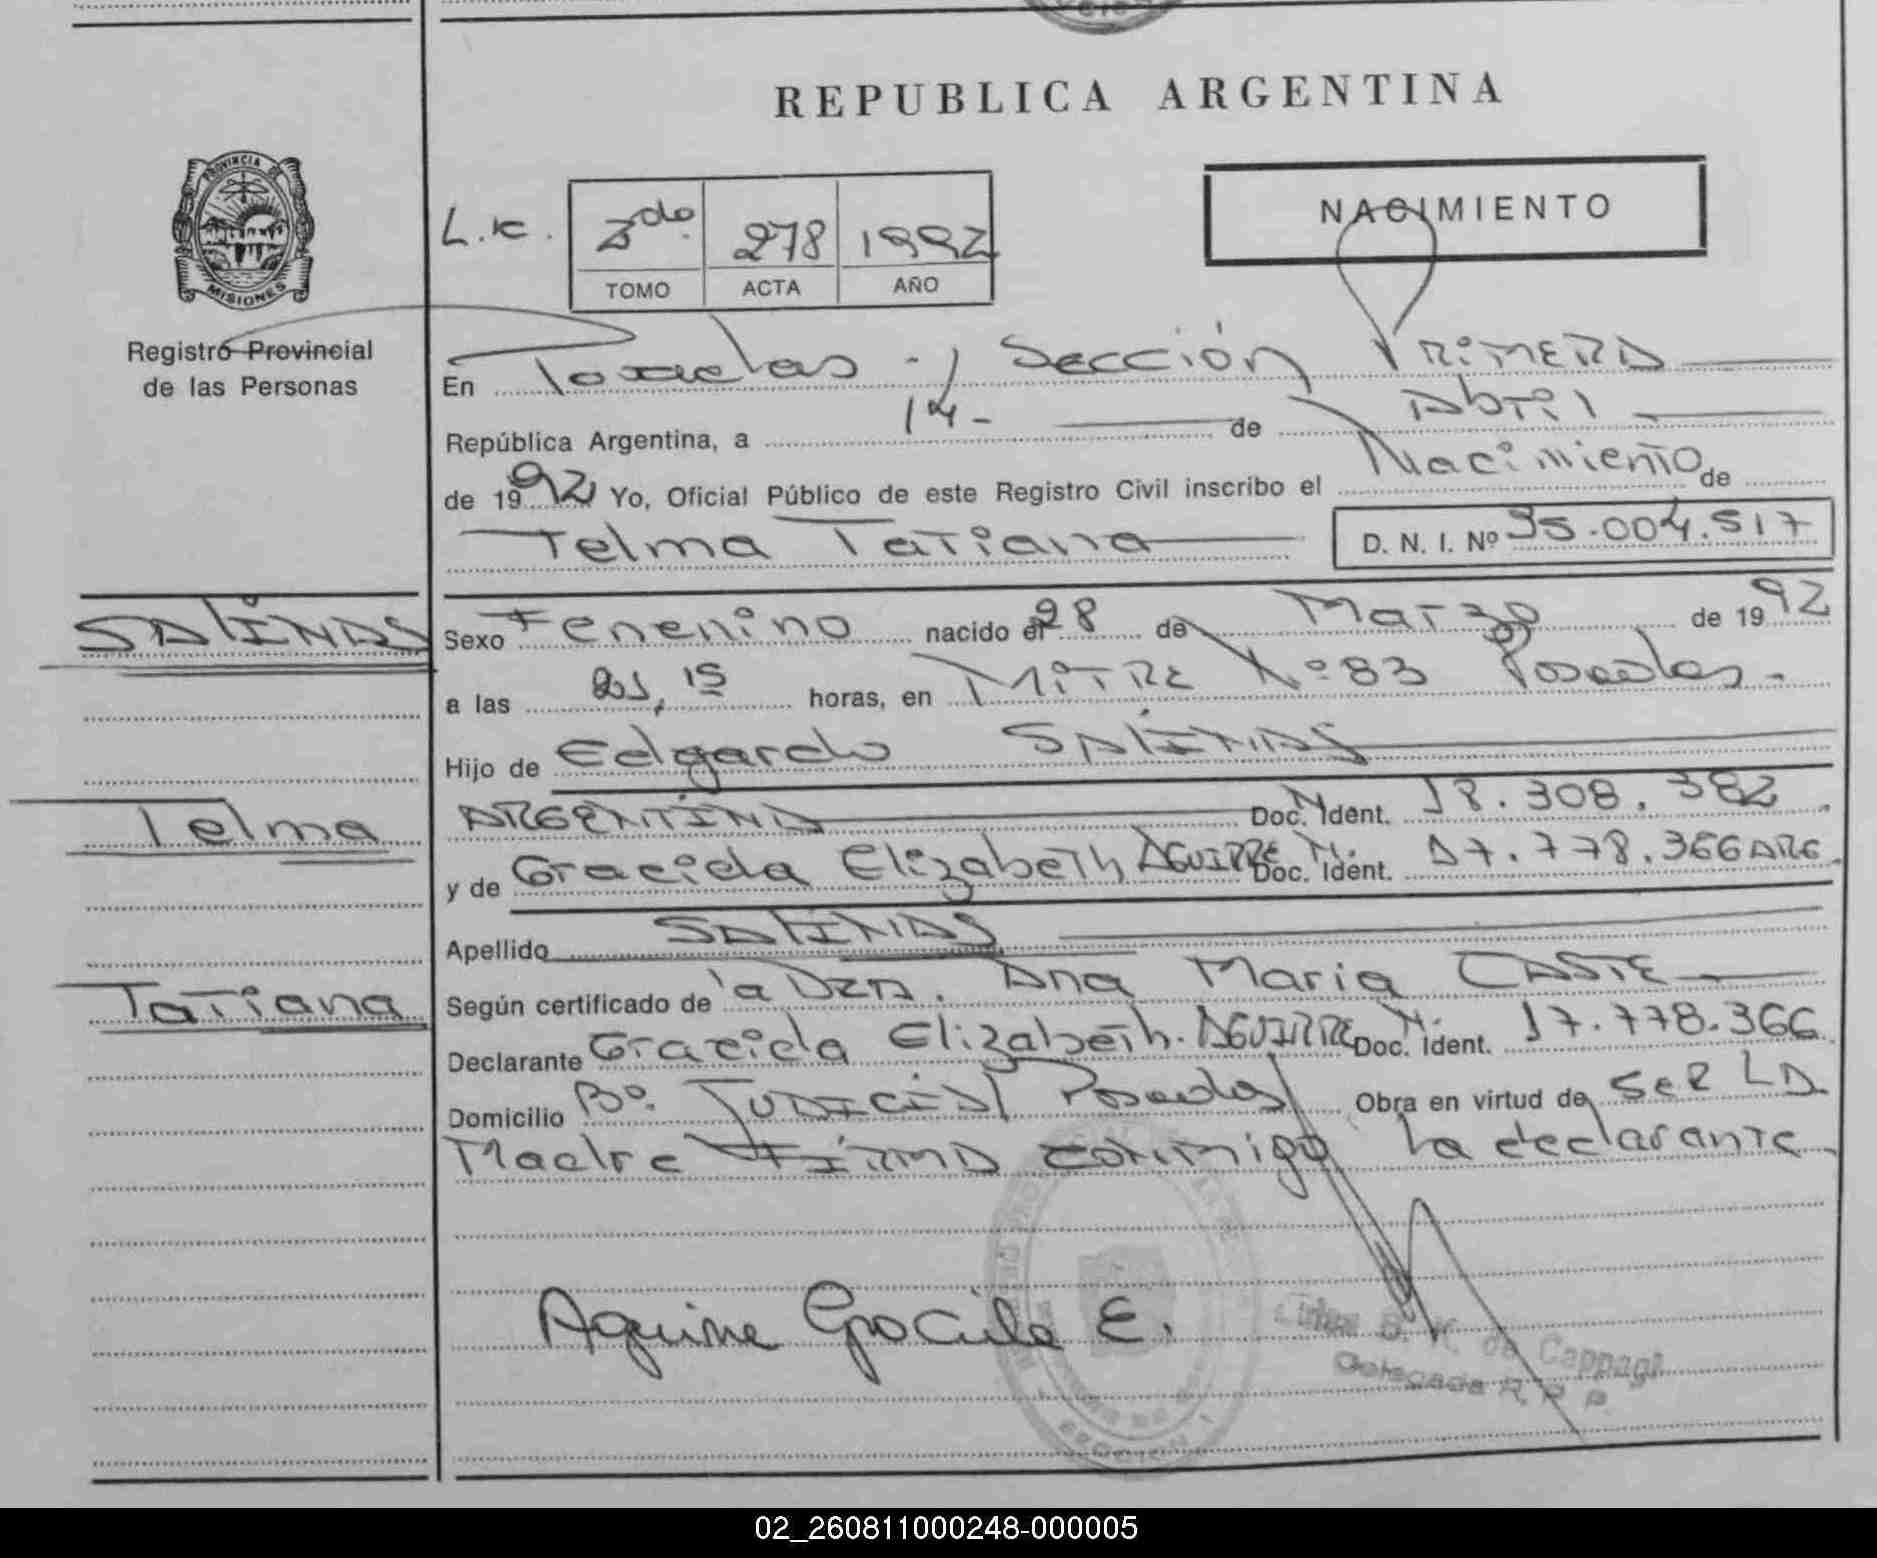 REPUBLICA ARGENTINA
PROVINCIA DE
MISIONES
Registro Provincial
de las Personas
L.C. 2do. 278 1992
TOMO ACTA AÑO
NACIMIENTO
En Posadas.-, Sección PRIMERA
República Argentina, a 14- de Abril
de 1992 Yo, Oficial Público de este Registro Civil inscribo el Nacimiento de
Telma Tatiana D. N. I. Nº 35.004.517
SALINAS
Sexo Femenino nacido el 28 de Marzo de 1992
a las 21,15 horas, en MITRE Nº 83 Posadas.-
Hijo de Edgardo SALINAS
ARGENTINA Doc. N. Ident. 18.308.382
Telma
y de Graciela Elizabeth AGUIRRE Doc. N. Ident. 17.778.366 ARG.
Apellido SALINAS
Según certificado de la DRA. Ana Maria CASTE
Tatiana
Declarante Graciela Elizabeth. AGUIRRE Doc. N. Ident. 17.778.366
Domicilio Bº. JUDICIAL Posadas Obra en virtud de SER LA
Madre FIRMA conmigo la declarante.
Aguirre Graciela E.
B. K. de Cappagli
Delegada R. P. P.
02_260811000248-000005